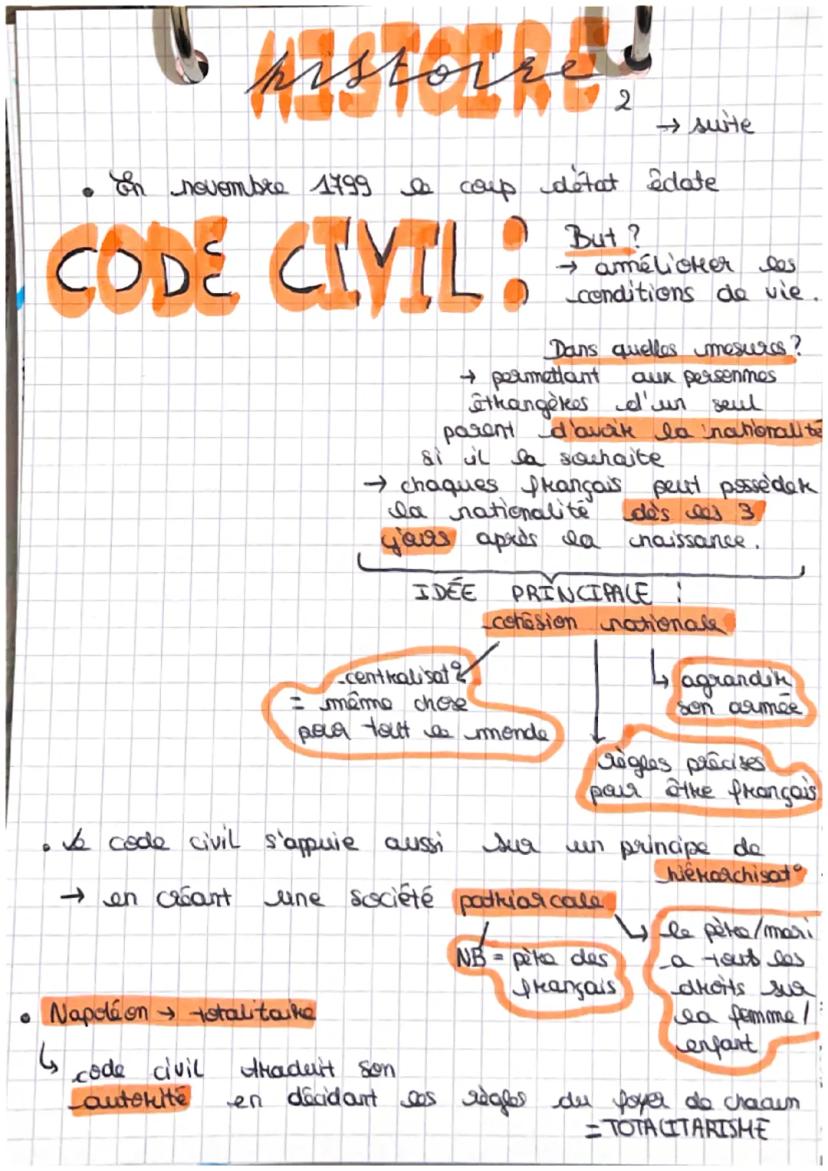 HISTOIRE
histoire 2
→ suite
• En novembre 1799 le coup d'état éclate
CODE CIVIL :
But ?
→ améliorer les
conditions de vie.
Dans quelles mesures ?
→ permettant aux personnes
étrangères d'un seul
parent d'avoir la nationalité
si il la souhaite
→ chaques français peut posséder
la nationalité dès les 3
jours après la naissance.
IDÉE PRINCIPALE :
cohésion nationale
centralisat°
= même chose
pour tout le monde
agrandir
son armée
règles précises
pour être français
• le code civil s'appuie aussi sur un principe de
hiérarchisat°
→ en créant une société patriarcale
NB = père des
français
le père/mari
a tout les
droits sur
la femme /
enfant
• Napoléon → totalitaire
↳ code civil traduit son
autorité en décidant les règles du foyer de chacun
= TOTALITARISME